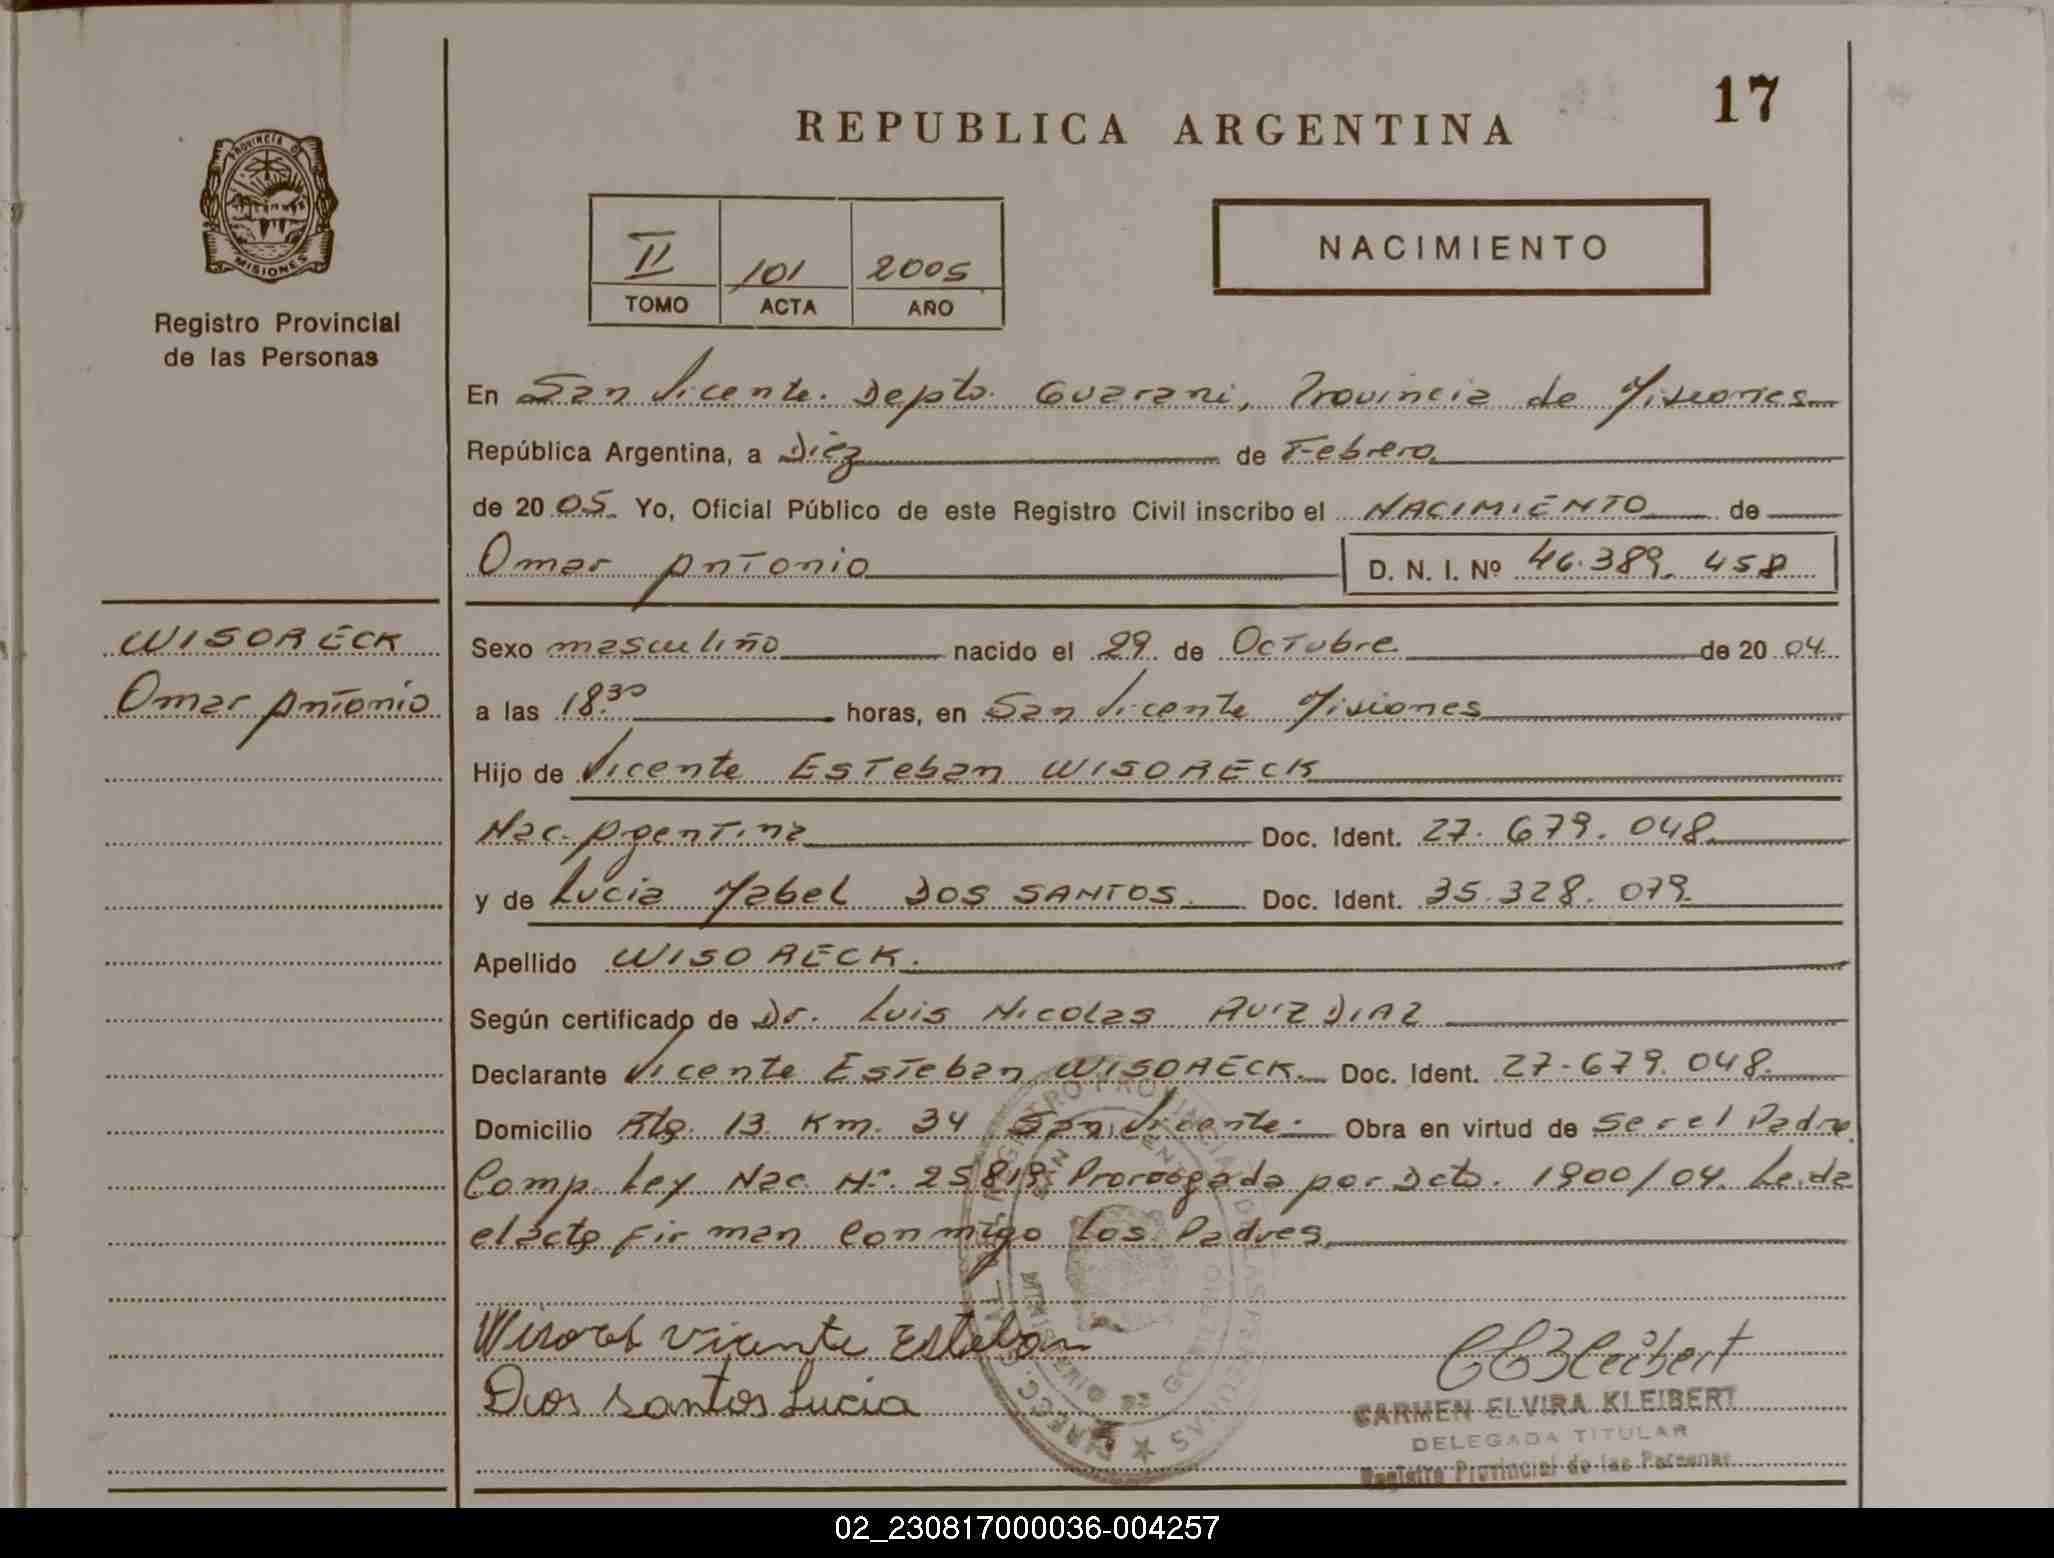 17
REPUBLICA ARGENTINA
PROVINCIA DE
MISIONES
Registro Provincial
de las Personas
II 101 2005
TOMO ACTA AÑO
NACIMIENTO
En San Vicente. Depto. Guarani, Provincia de Misiones
República Argentina, a Diez de Febrero
de 20 05 Yo, Oficial Público de este Registro Civil inscribo el NACIMIENTO de
Omar Antonio D. N. I. Nº 46.389.458
WISORECK
Omar Antonio
Sexo masculino nacido el 29 de Octubre de 20 04
a las 18.30 horas, en San Vicente Misiones
Hijo de Vicente Esteban WISORECK
Nac. Argentina Doc. Ident. 27.679.048
y de Lucia Mabel DOS SANTOS Doc. Ident. 35.328.079
Apellido WISORECK.
Según certificado de Dr. Luis Nicolas RUIZ DIAZ
Declarante Vicente Esteban WISORECK. Doc. Ident. 27.679.048.
Domicilio Rta. 13 Km. 34 San Vicente. Obra en virtud de ser el Padre
Comp. Ley Nac. Nº. 25819 Prorrogada por Dcto. 1900/04. Leida
el acta firman conmigo los Padres
Vicente Esteban
Dos Santos Lucia
CARMEN ELVIRA KLEIBERT
DELEGADA TITULAR
Registro Provincial de las Personas
02_230817000036-004257